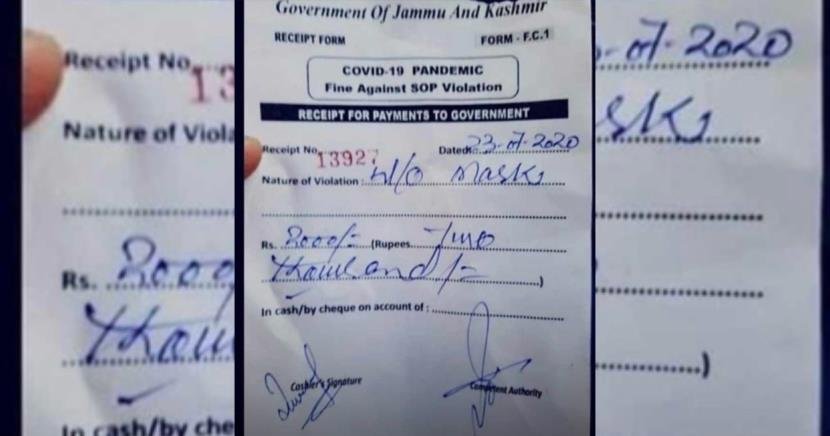 Government Of Jammu And Kashmir
RECEIPT FORM FORM - F.C.1
COVID-19 PANDEMIC
Fine Against SOP Violation
RECEIPT FOR PAYMENTS TO GOVERNMENT
Receipt No. 13927 Dated: 23-07-2020
Nature of Violation : W/O Mask
Rs. 2000/- (Rupees Two
thousand/- )
In cash/by cheque on account of :
Cashier's Signature Competent Authority